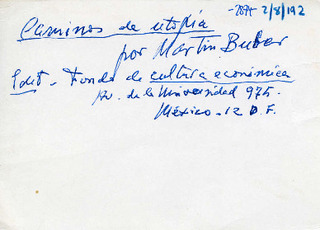 2/8/192
Caminos de utopía
por Martin Buber
Edit. Fondo de cultura económica
Av. de la Universidad 975.
México - 12 D.F.